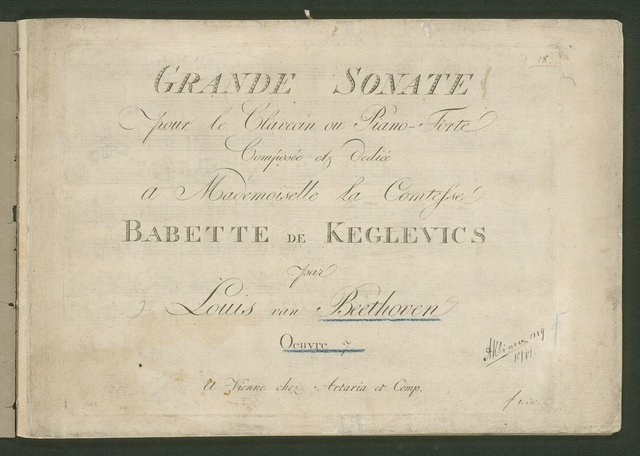 18
GRANDE SONATE
pour le Clavecin ou Piano-Forte
Composée et dediée
a Mademoiselle la Comtesse
BABETTE DE KEGLEVICS
par
Louis van Beethoven
Oeuvre 7
A Vienne chez Artaria et Comp.